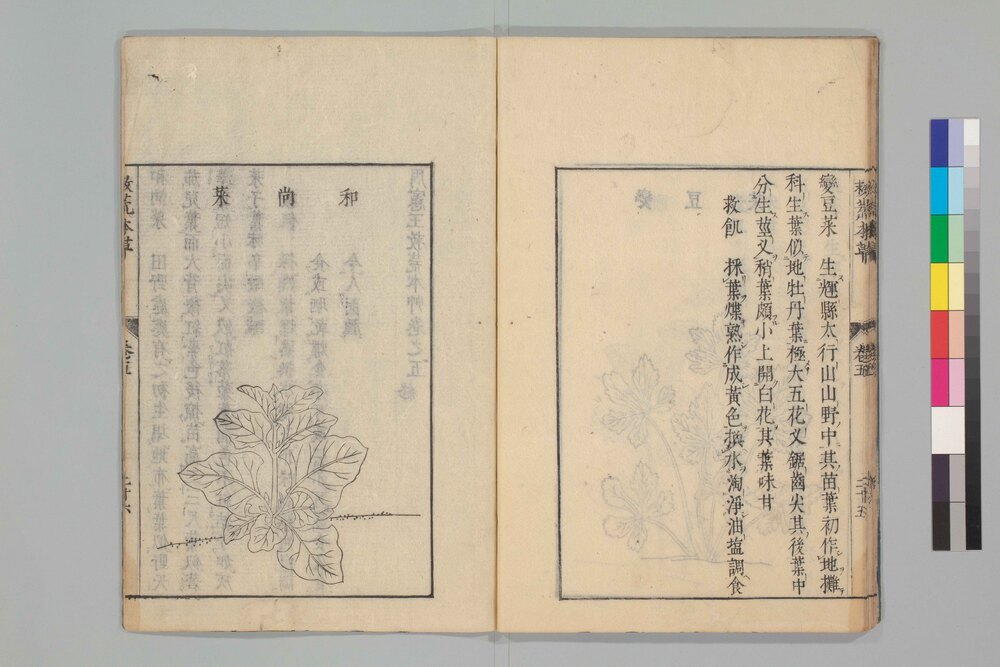 變豆菜 生輝縣太行山山野中其苗葉初作地攤
科生葉似地牡丹葉極大五花叉鋸齒尖其後葉中
分生莖叉稍葉頗小上開白花其葉味甘
救飢 採葉煠熟作成黃色換水淘淨油塩調食
救荒本草
卷五
二十五
和
尚
菜
救荒本草
卷五
二十六